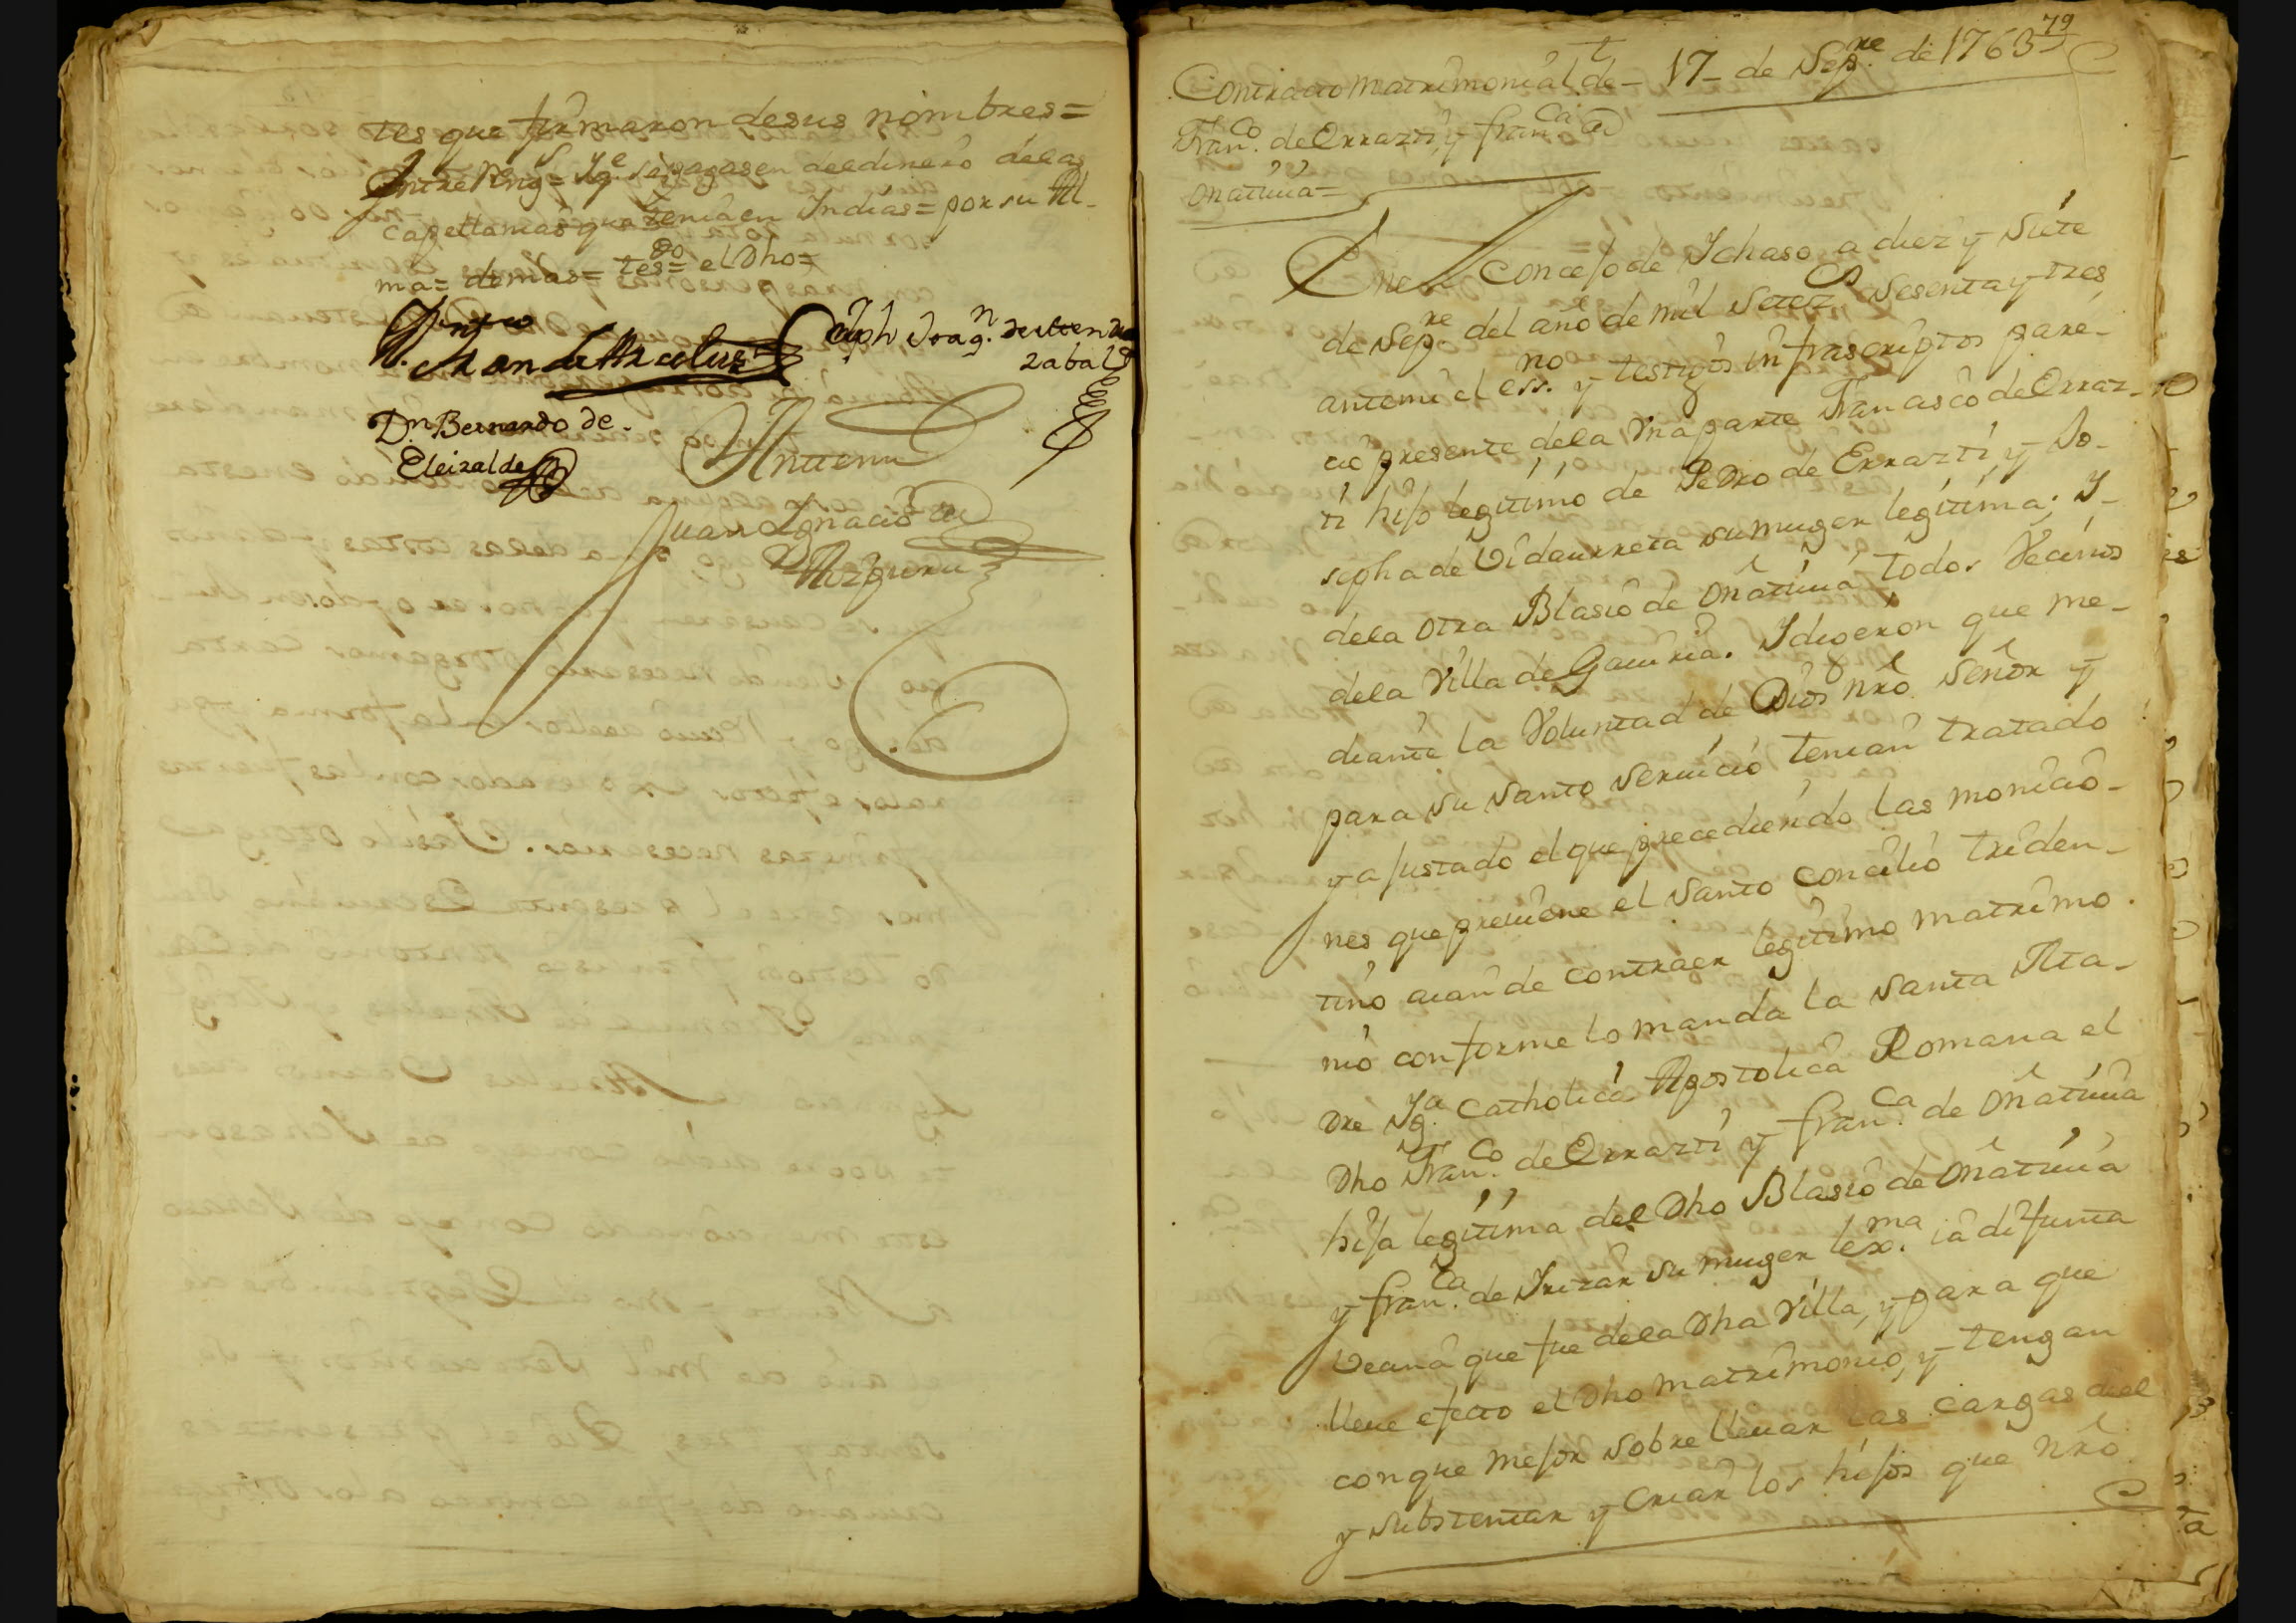 tes que firmaron de sus nombres=
Entre Reng.s= Y q.e se pagasen del dinero de las
capellanias que tenia en Indias= por su Al-
ma= demas= tes.go= el Dho=
Man de Arcelus
Joseph Joaq.n de
zabal
D.n Bernardo de
Eleizalde
Antemi
Juan Ignacio de
Aizpuru
79
Contrato Matrimonial de - 17- de Sep.re de 1763
Fran.co de Errazti, y fran.ca de
Oñativia=
En el Concejo de Ichaso a diez y siete
de Sep.re del año de mil setez.s sesenta y tres
antemi el ess.no y testigos infrascriptos pare-
cio presente dela Una parte Francisco de Erraz-
ti hijo legitimo de Pedro de Errazti y Jo-
sepha de Vidaurreta su muger legitima; Y-
dela otra Blasio de Oñativia, todos Vecinos
dela Villa de Gaviria. Y dixeron que me-
diante la Voluntad de Dios nro señor y
para su santo servicio tenian tratado
y ajustado el que precediendo las monicio-
nes que previene el santo concilio triden-
tino aian de contraer legitimo matrimo-
nio conforme lo manda la santa Ma-
dre Ig.a Catholica Apostolica Romana el
Dho Fran.co de Errazti y fran.ca de Oñativia
hija legitima del Dho Blasio de Oñativia
y fran.ca de Irizar su muger lex.ma ia difunta
Vecina que fue dela Dha Villa, y para que
lleve efecto el Dho matrimonio, y tengan
conque mejor sobrellevar las cargas del
y substentar y Criar los hijos que nro